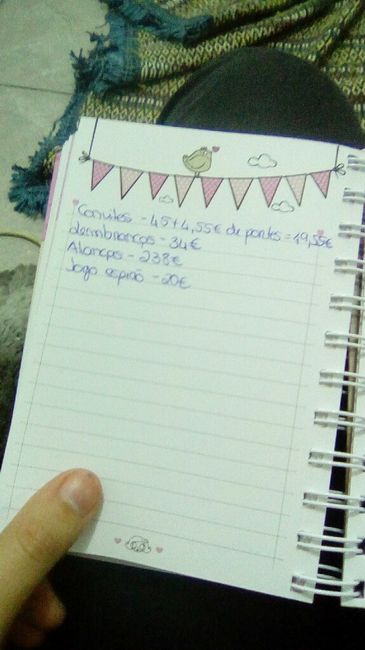 Convites - 45+4,55€ de portes = 49,55€
Lembranças - 34€
Alianças - 238€
Jogo espião - 20€